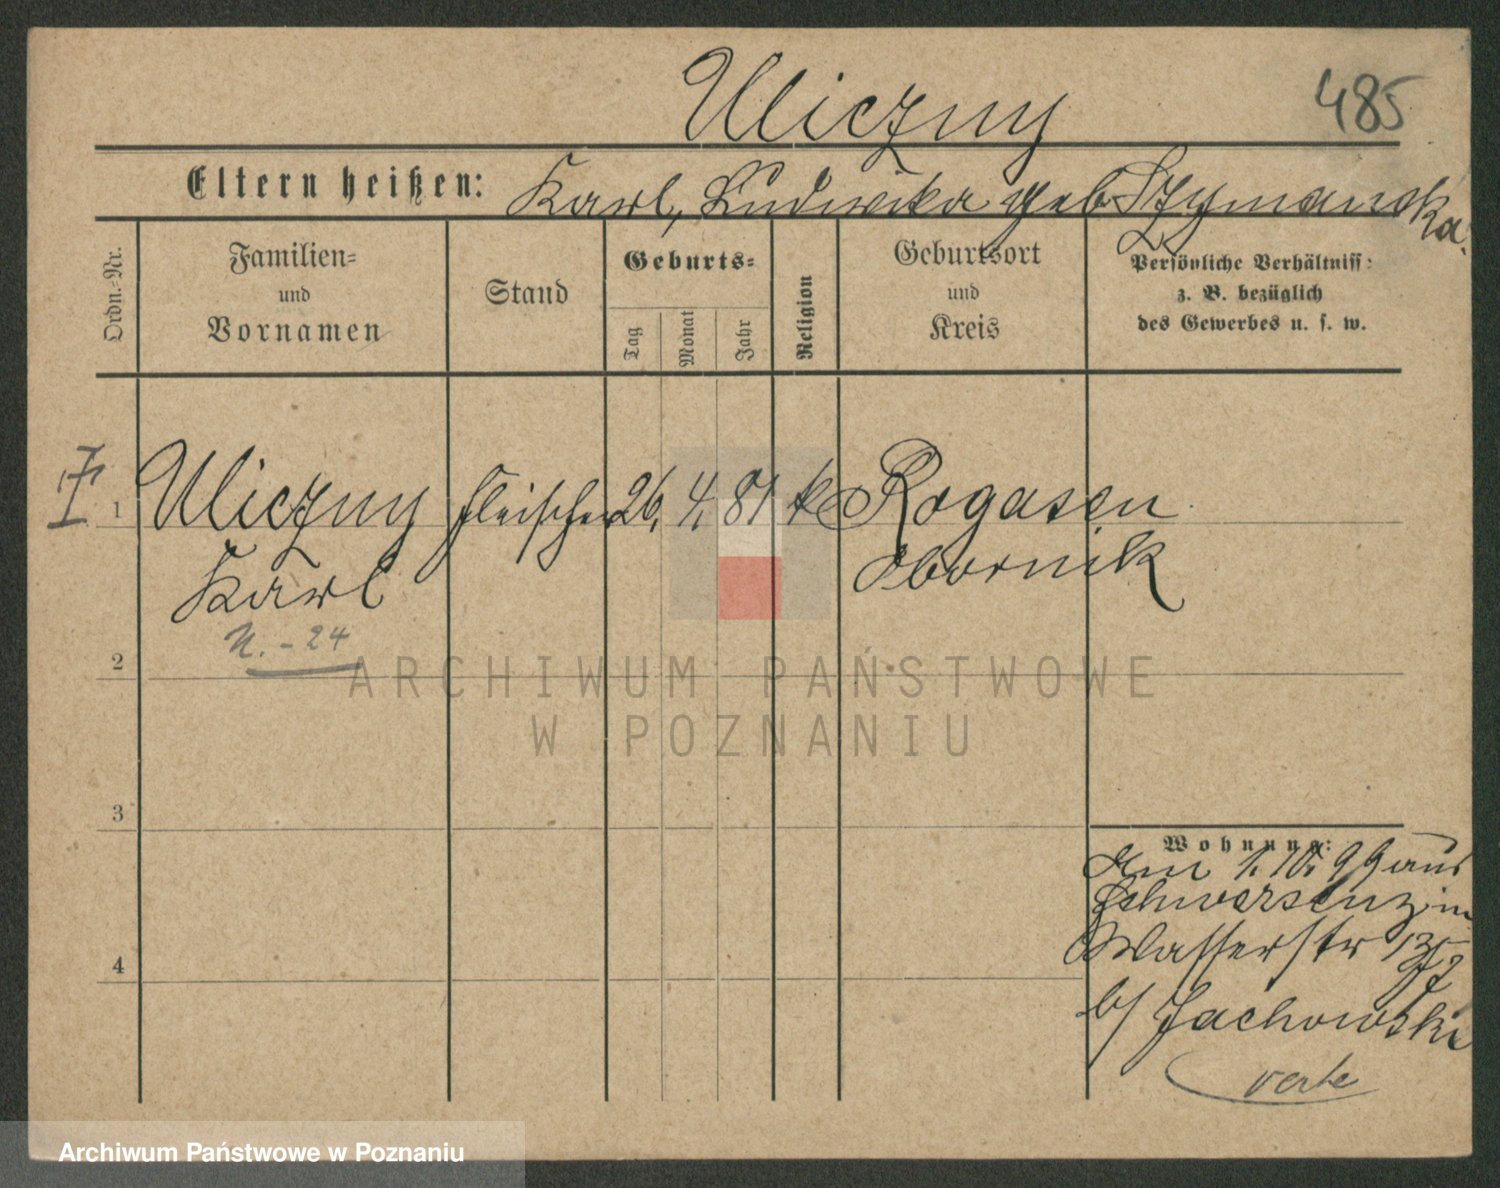 Uliczny
485
Eltern heißen: Karl, Ludwika geb Szymanska.
Ordn.-Nr.
Familien-
und
Vornamen
Stand
Geburts-
Tag
Monat
Jahr
Religion
Geburtsort
und
Kreis
Persönliche Verhältniss:
z. B. bezüglich
des Gewerbes u. s. w.
I
1 Uliczny Fleischer 26. 4. 81 k Rogasen
Karl Obornik
U. - 24
2
ARCHIWUM PAŃSTWOWE
W POZNANIU
3
Wohnung:
Am 1. 10. 99 aus
Schwersenz in
4
Wasserstr
b/ Jachowski
verte
Archiwum Państwowe w Poznaniu